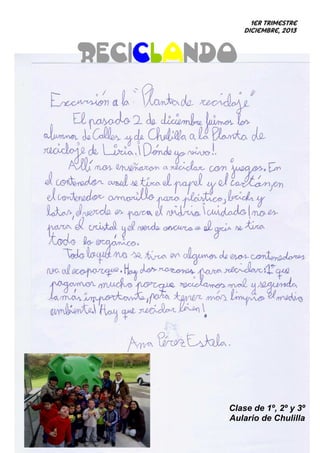 1ER TRIMESTRE
DICIEMBRE, 2013
RECICLANDO
Excursión a la "Planta de reciclaje"
El pasado 2 de diciembre fuimos los
alumnos de Calles y de Chulilla a la Planta de
reciclaje de Liria. ¡Dónde yo vivo!!
Allí nos enseñaron a reciclar con juegos. En
el contenedor azul se tira el papel y el cartón, en
el contenedor amarillo para plástico, bricks y
latas, el verde es para el vidrio ¡cuidado! no es
para el cristal y el verde oscuro o el gris se tira
todo lo orgánico.
Todo lo que no se tira en algunos de esos contenedores
va al ecoparque. Hay dos razones para reciclar: 1ª que
pagamos mucho porque reciclamos mal y segunda
la más importante, para tener más limpio el medio
ambiente! Hay que reciclar bien!
Ana Pérez Estela.
Clase de 1º, 2º y 3º
Aulario de Chulilla